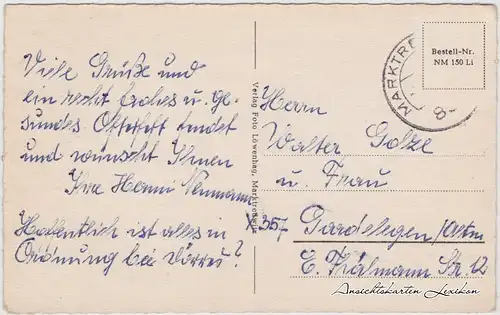 Viele Grüße und
ein recht frohes u. ge-
sundes Osterfest sendet
und wünscht Ihnen
Ihre Hanni Neumann
Hoffentlich ist alles in
Ordnung bei Dörres?
Verlag Foto Löwenhag, Marktredwitz
MARKTRE
8-
Bestell-Nr.
NM 150 Li
Herrn
Walter Golze
u. Frau
X 357 Gardelegen/Altm
E. Thälmann Str. 12
Ansichtskarten Lexikon